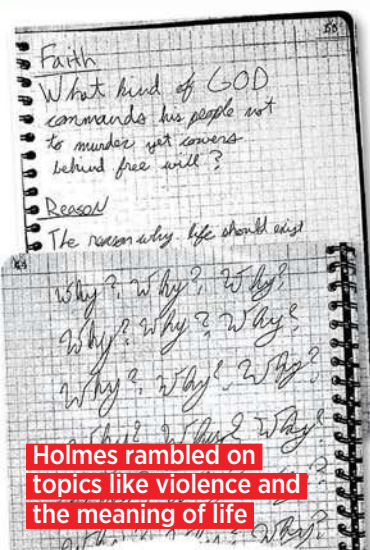 55
Faith
What kind of GOD
commands his people not
to murder yet cowers
behind free will?
Reason
The reason why life should exist
Why?, Why?, Why?
Why? Why? Why?
Why? Why? Why?
Why? Why? Why?
Holmes rambled on
topics like violence and
the meaning of life
Why?